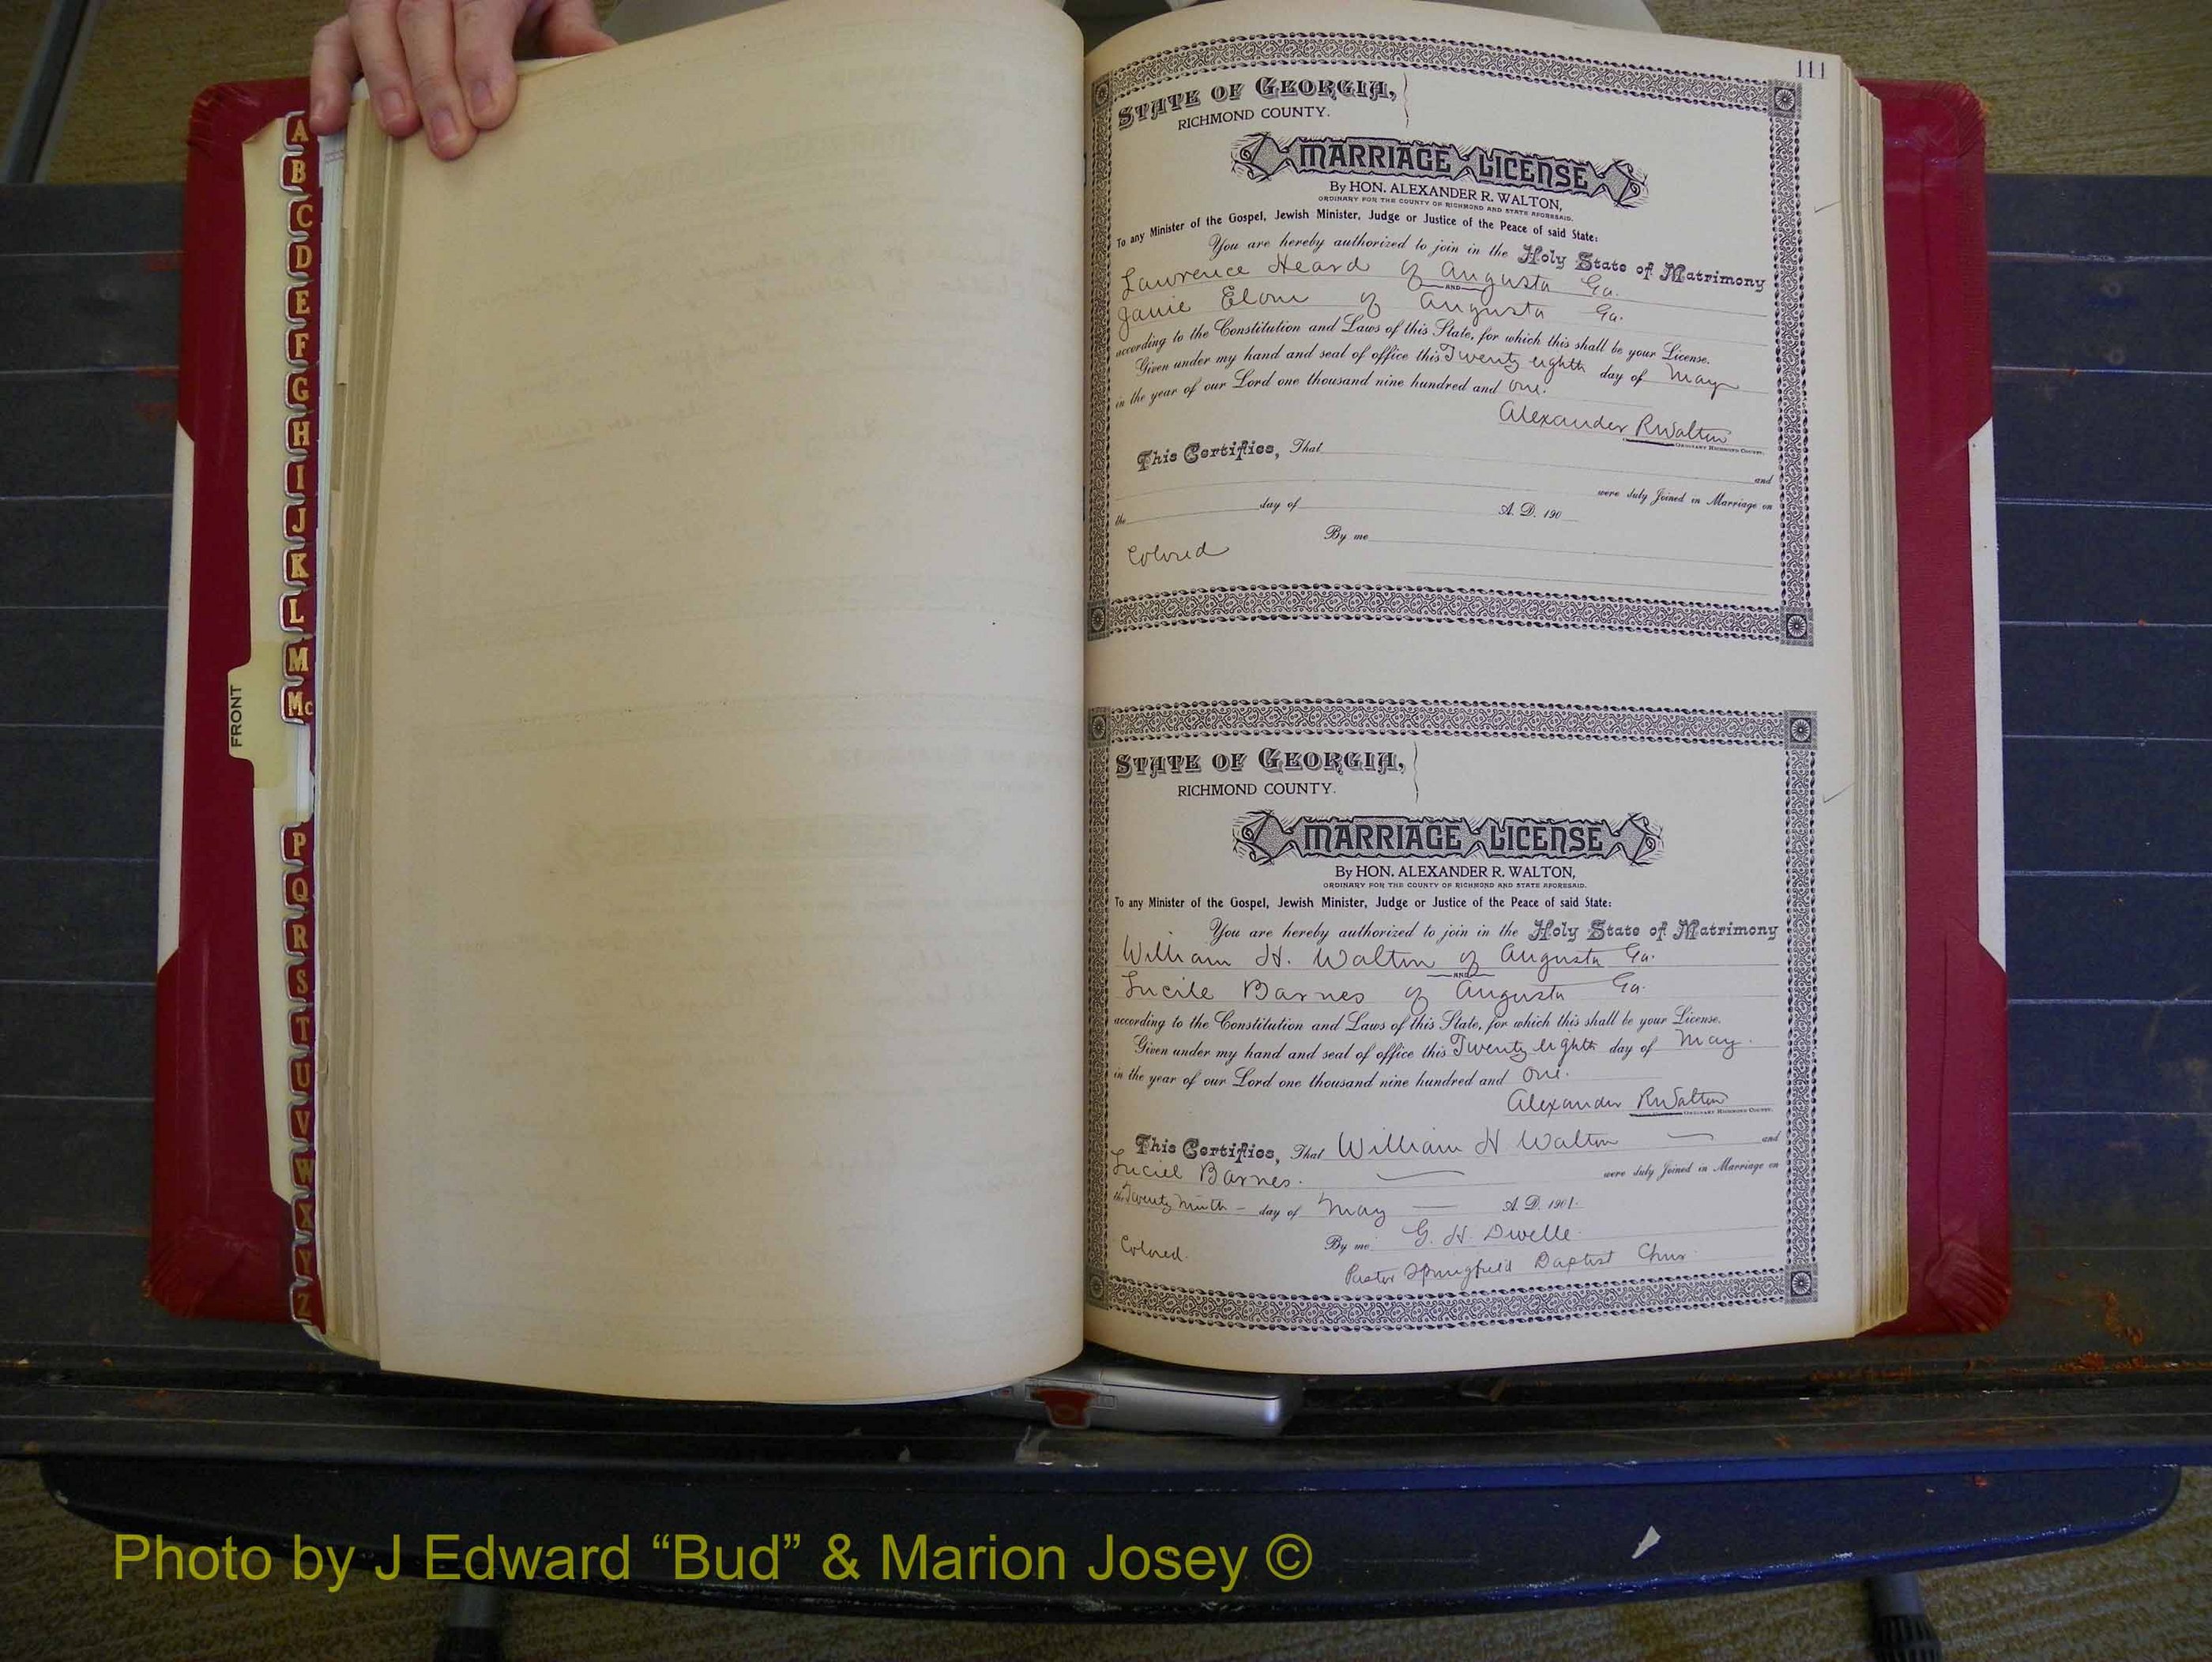 A
B
C
D
E
F
G
H
I
J
K
L
M
Mc
FRONT
P
Q
R
S
T
U
V
W
X
Y
Z
111
STATE OF GEORGIA,
RICHMOND COUNTY.
MARRIAGE LICENSE
By HON. ALEXANDER R. WALTON,
ORDINARY FOR THE COUNTY OF RICHMOND AND STATE AFORESAID.
To any Minister of the Gospel, Jewish Minister, Judge or Justice of the Peace of said State:
You are hereby authorized to join in the Holy State of Matrimony
Lawrence Heard of Augusta Ga.
AND
Janie Elom of Augusta Ga.
according to the Constitution and Laws of this State, for which this shall be your License.
Given under my hand and seal of office this Twenty eighth day of May
in the year of our Lord one thousand nine hundred and one.
Alexander R Walton
ORDINARY RICHMOND COUNTY.
This Certifies, That
and
were duly Joined in Marriage on
the day of A. D. 190
By me
Colored
STATE OF GEORGIA,
RICHMOND COUNTY.
MARRIAGE LICENSE
By HON. ALEXANDER R. WALTON,
ORDINARY FOR THE COUNTY OF RICHMOND AND STATE AFORESAID.
To any Minister of the Gospel, Jewish Minister, Judge or Justice of the Peace of said State:
You are hereby authorized to join in the Holy State of Matrimony
William H. Walton of Augusta Ga.
AND
Lucile Barnes of Augusta Ga.
according to the Constitution and Laws of this State, for which this shall be your License.
Given under my hand and seal of office this Twenty eighth day of May.
in the year of our Lord one thousand nine hundred and one.
Alexander R Walton
ORDINARY RICHMOND COUNTY.
This Certifies, That William H Walton and
Luciel Barnes. were duly Joined in Marriage on
the Twenty Ninth day of May A. D. 1901.
By me. G. H. Dwelle
Colored.
Pastor Springfield Baptist Chur
Photo by J Edward “Bud” & Marion Josey ©